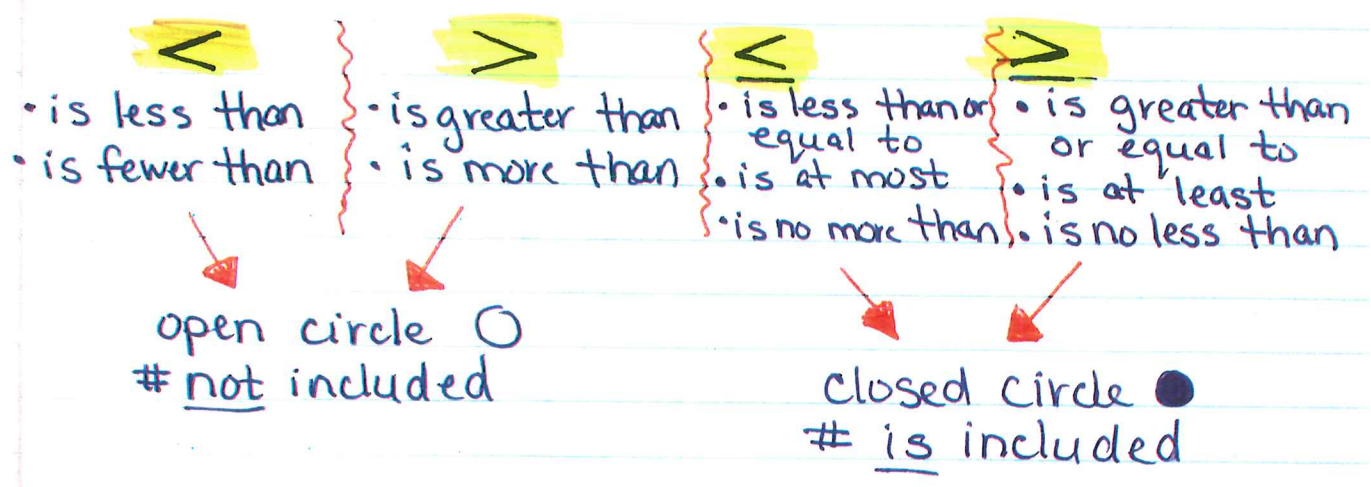 <
• is less than
• is fewer than
>
• is greater than
• is more than
≤
• is less than or
equal to
• is at most
• is no more than
≥
• is greater than
or equal to
• is at least
• is no less than
open circle ○
# not included
closed circle ●
# is included